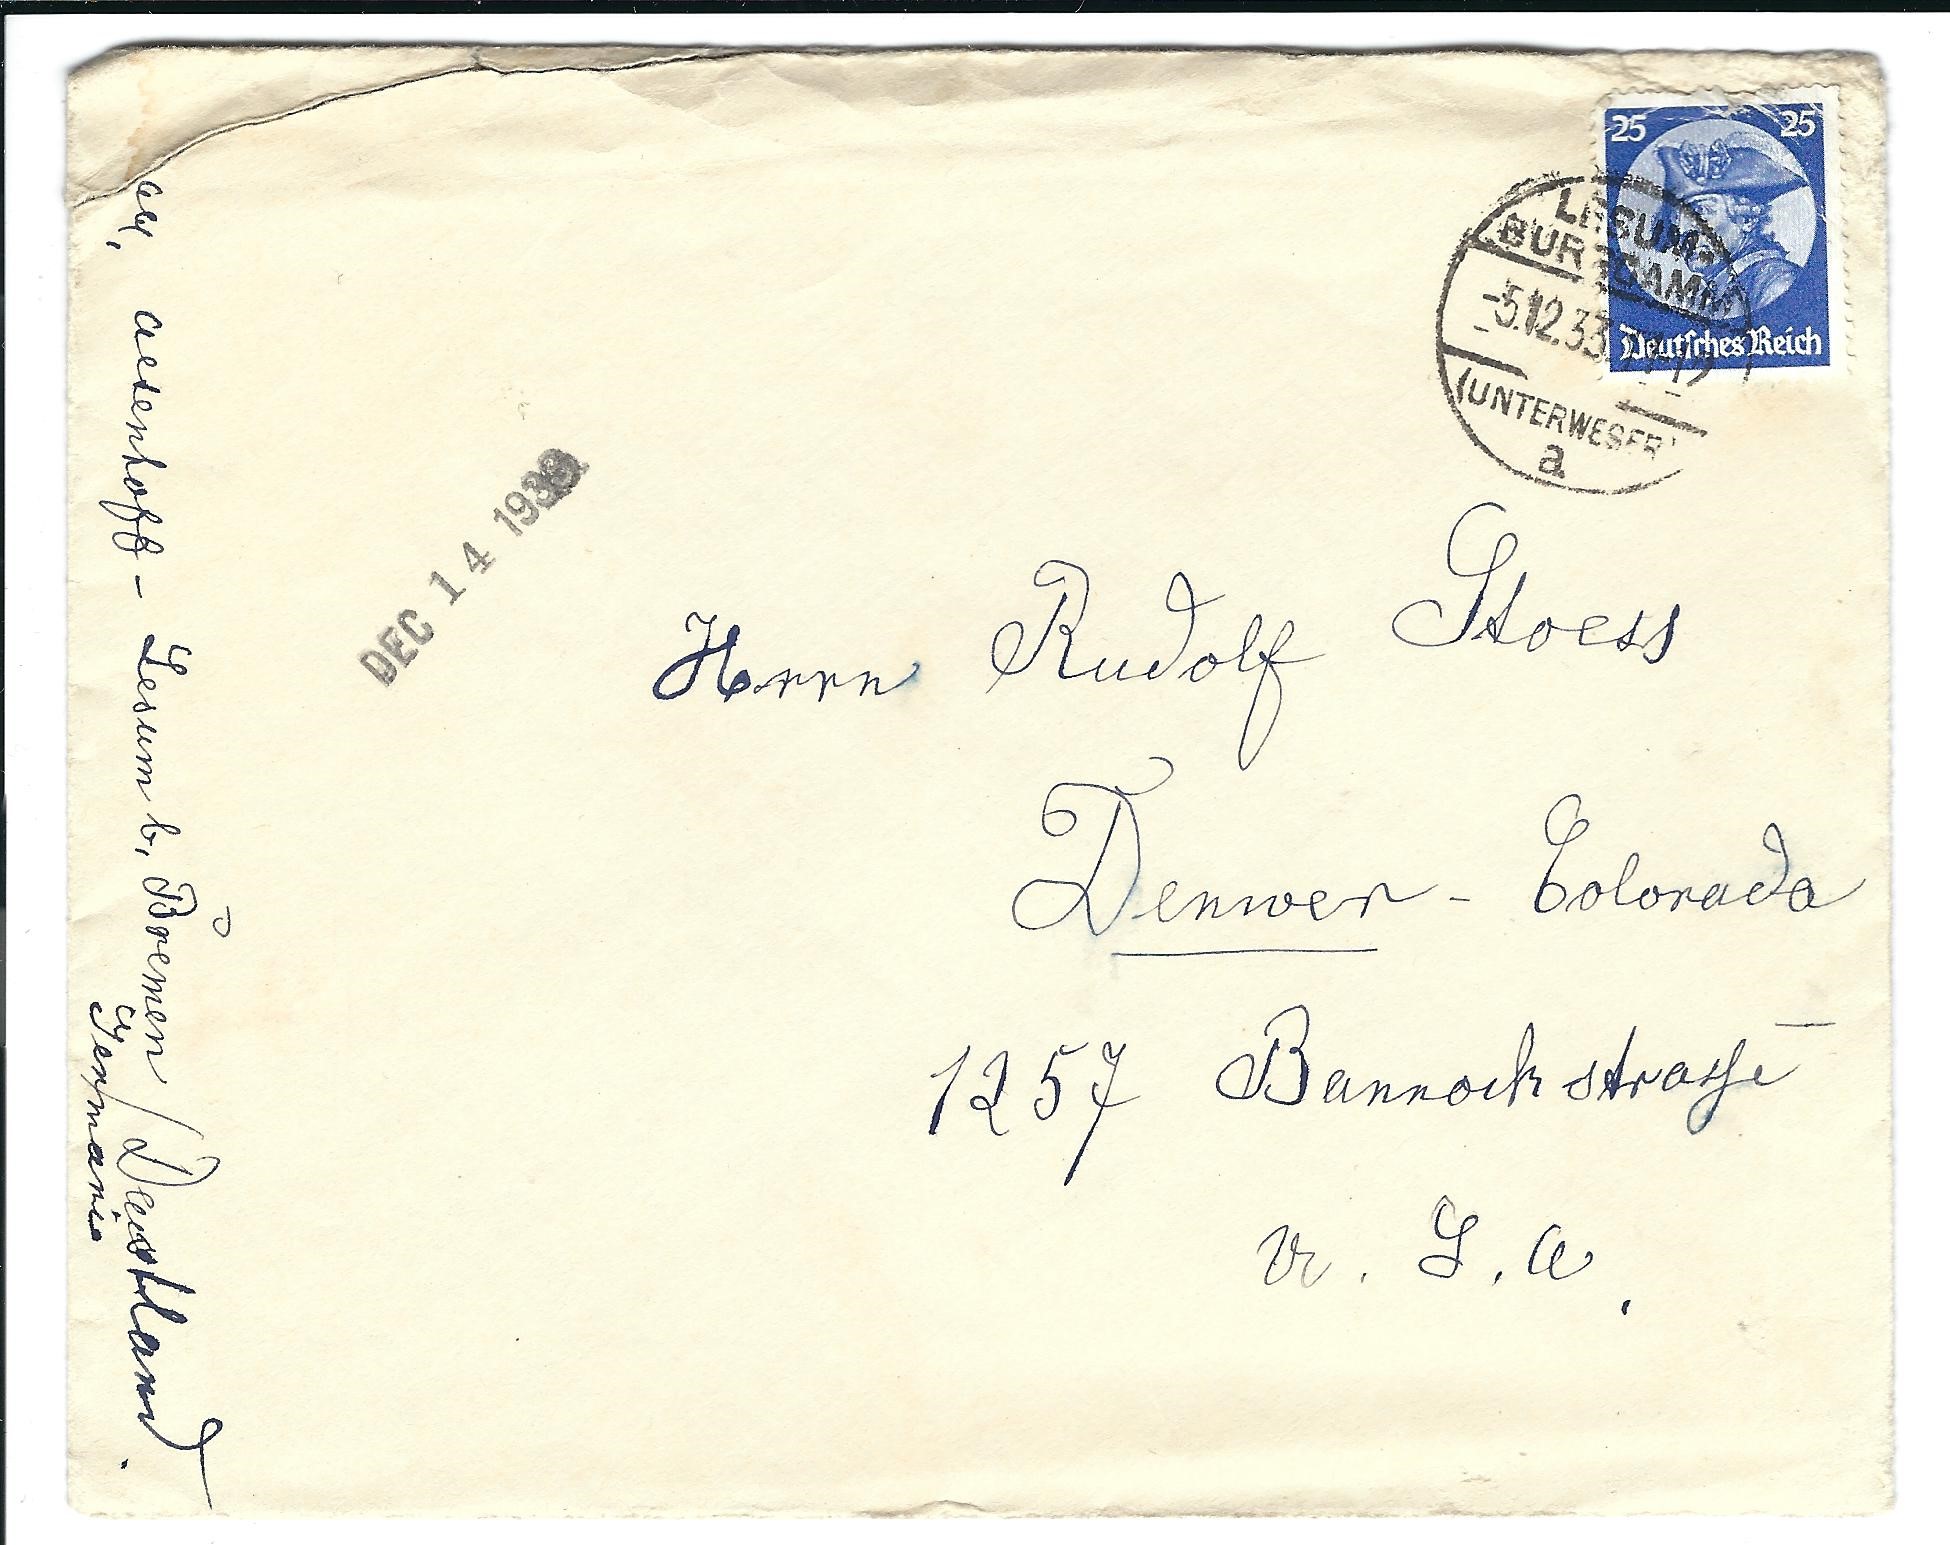 25 25
Deutsches Reich
LESUM-
BURGDAMM
-5.12.33.
(UNTERWESER)
a
DEC 14 1933
Herrn Rudolf Stoess
Denwer - Colorado
1257 Bannockstrasse
U. S. A.
Lesum b. Bremen / Deustland.
Germania